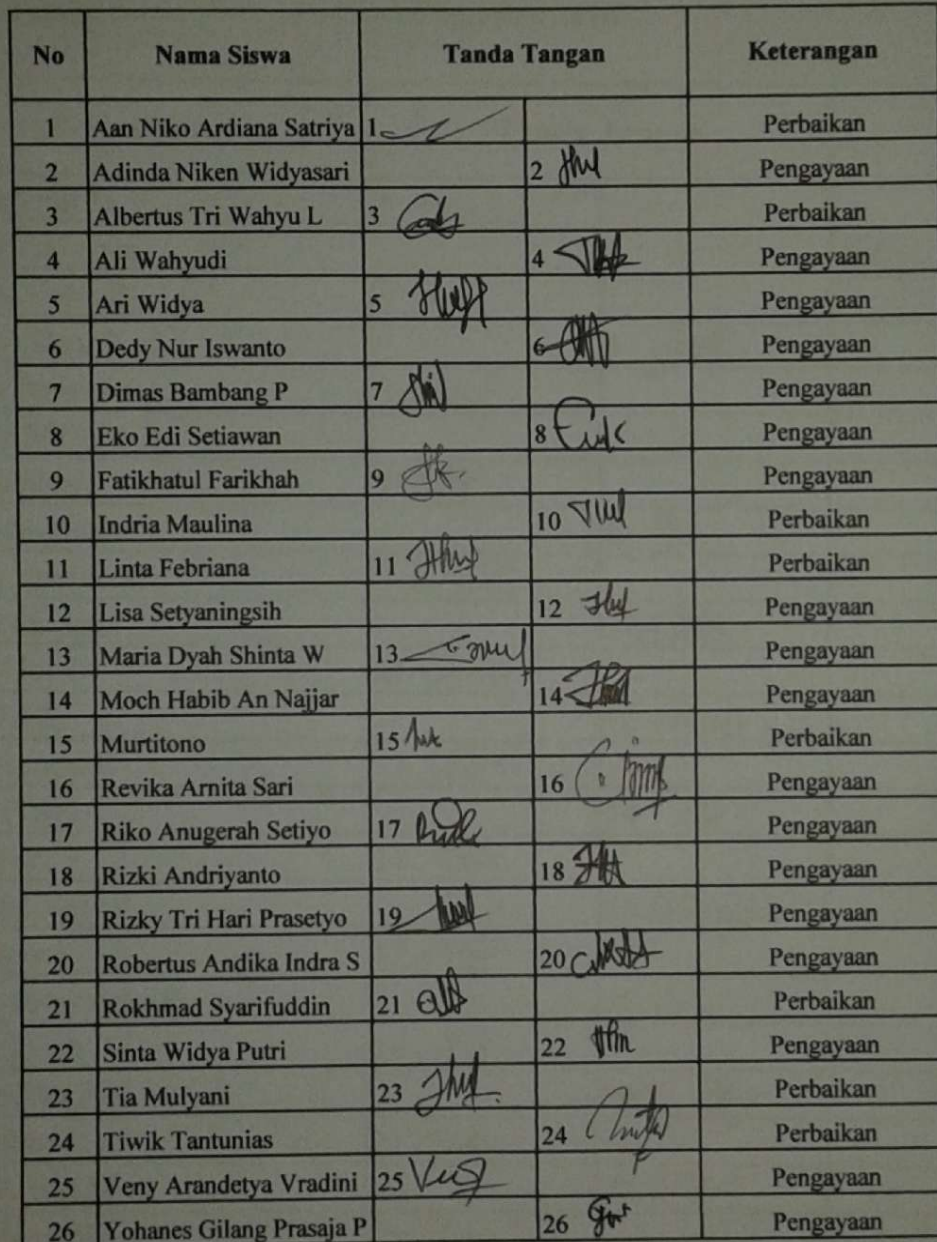 No Nama Siswa Tanda Tangan Keterangan
1 Aan Niko Ardiana Satriya 1 Perbaikan
2 Adinda Niken Widyasari 2 Pengayaan
3 Albertus Tri Wahyu L 3 Perbaikan
4 Ali Wahyudi 4 Pengayaan
5 Ari Widya 5 Pengayaan
6 Dedy Nur Iswanto 6 Pengayaan
7 Dimas Bambang P 7 Pengayaan
8 Eko Edi Setiawan 8 Pengayaan
9 Fatikhatul Farikhah 9 Pengayaan
10 Indria Maulina 10 Perbaikan
11 Linta Febriana 11 Perbaikan
12 Lisa Setyaningsih 12 Pengayaan
13 Maria Dyah Shinta W 13 Pengayaan
14 Moch Habib An Najjar 14 Pengayaan
15 Murtitono 15 Perbaikan
16 Revika Arnita Sari 16 Pengayaan
17 Riko Anugerah Setiyo 17 Pengayaan
18 Rizki Andriyanto 18 Pengayaan
19 Rizky Tri Hari Prasetyo 19 Pengayaan
20 Robertus Andika Indra S 20 Pengayaan
21 Rokhmad Syarifuddin 21 Perbaikan
22 Sinta Widya Putri 22 Pengayaan
23 Tia Mulyani 23 Perbaikan
24 Tiwik Tantunias 24 Perbaikan
25 Veny Arandetya Vradini 25 Pengayaan
26 Yohanes Gilang Prasaja P 26 Pengayaan